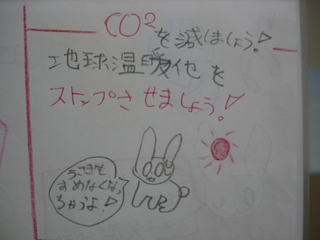 CO²を減はしょう!
地球温暖化を
ストップさせましょう!
うさぎも
すめなくなっ
ちゃうよ!